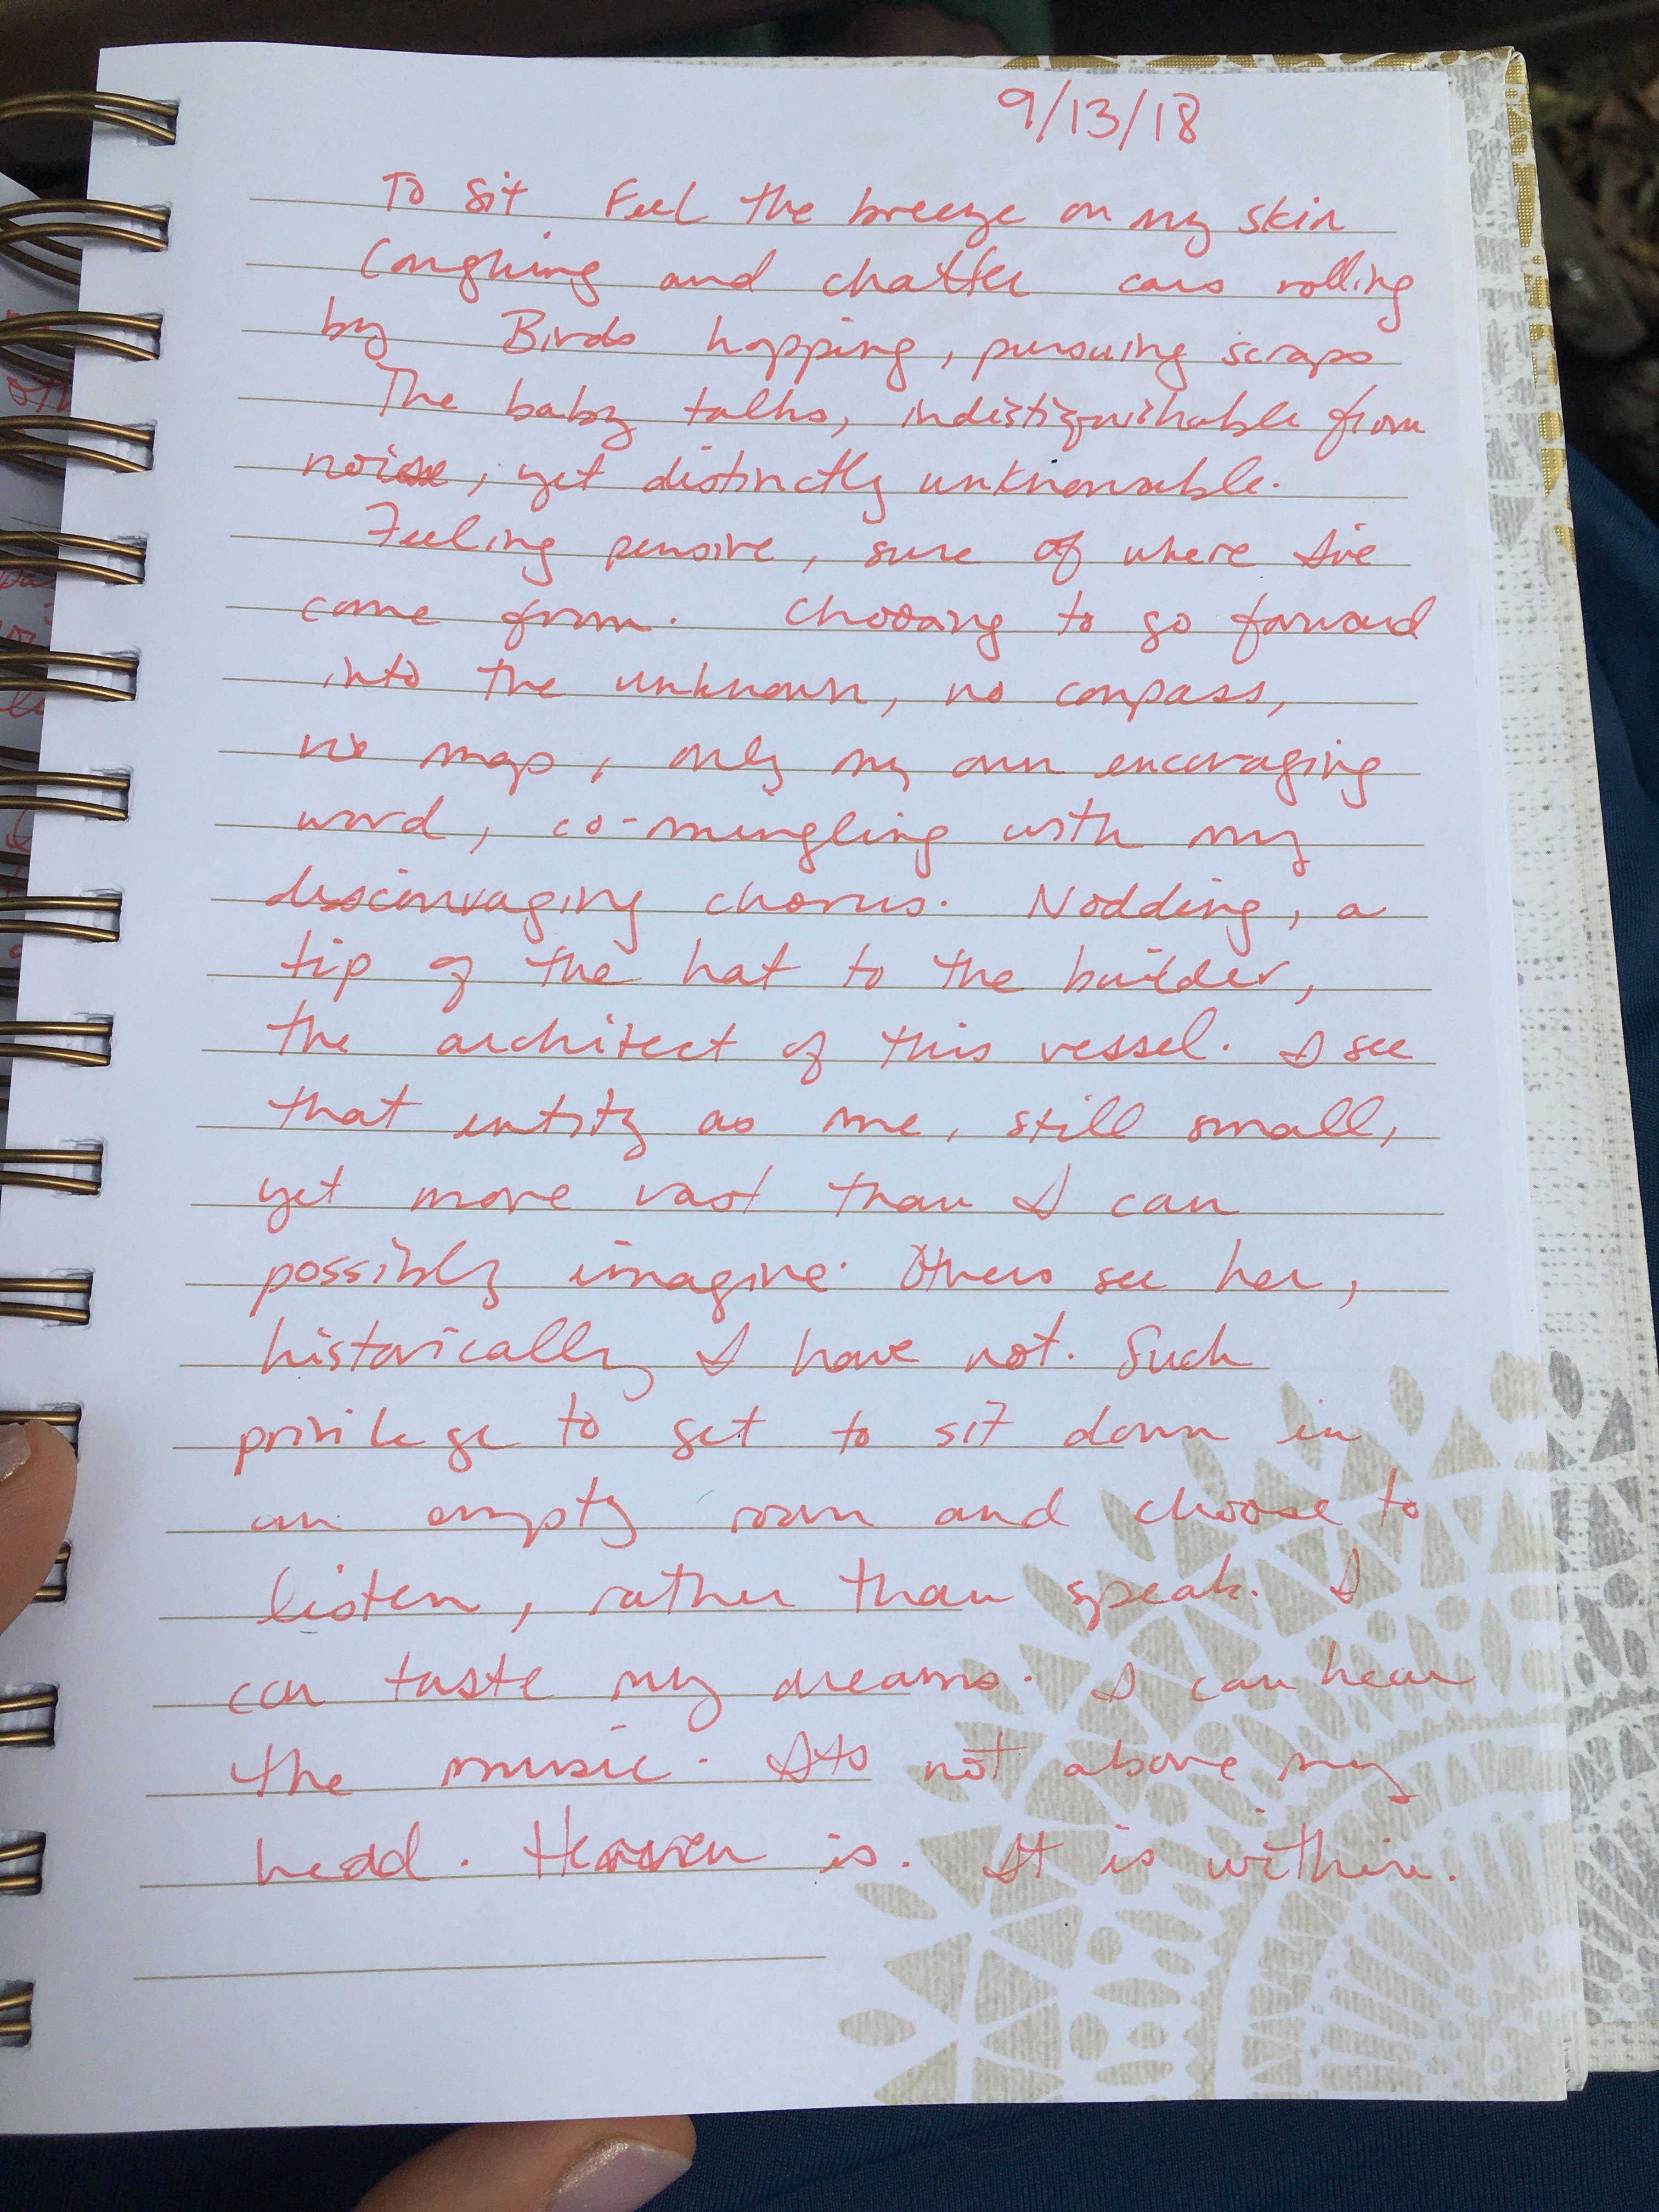 9/13/18
To sit Feel the breeze on my skin
Coughing and chatter cars rolling
by Birds hopping, pursuing scraps
The baby talks, indistinguishable from
noise, yet distinctly unknowable.
Feeling pensive, sure of where I've
come from. Choosing to go forward
into the unknown, no compass,
no map, only my own encouraging
word, co-mingling with my
discouraging chorus. Nodding, a
tip of the hat to the builder,
the architect of this vessel. I see
that entity as me, still small,
yet more vast than I can
possibly imagine. Others see her,
historically I have not. Such
privilege to get to sit down in
an empty room and choose to
listen, rather than speak. I
can taste my dreams. I can hear
the music. Its not above my
head. Heaven is. It is within.